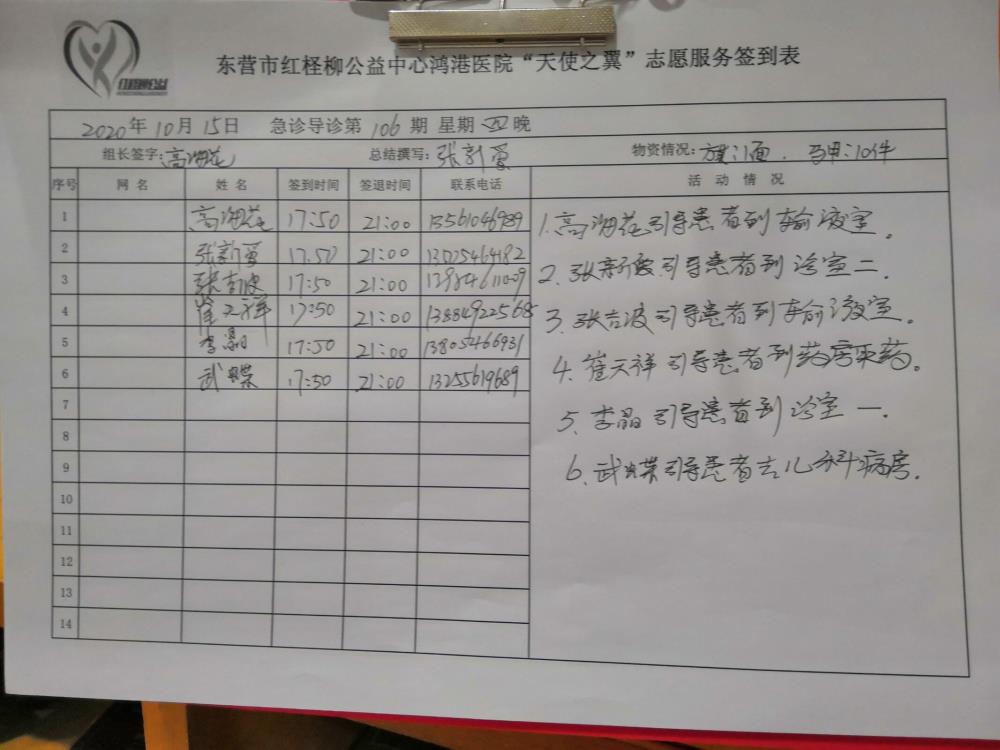 红柽柳公益
东营市红柽柳公益中心鸿港医院“天使之翼”志愿服务签到表
2020年10月15日 急诊导诊第106期 星期四晚
组长签字:高海花 总结撰写:张新爱 物资情况:旗:1面. 马甲:10件
序号 网名 姓名 签到时间 签退时间 联系电话 活动情况
1 高海花 17:50 21:00 13561046989
2 张新爱 17:50 21:00
3 张吉波 17:50 21:00
4 崔天祥 17:50 21:00 13884922568
5 李晶 17:50 21:00 13805466931
6 武蝶 17:50 21:00 13255619689
7
8
9
10
11
12
13
14
1.高海花引导患者到输液室。
2.张新爱引导患者到诊室二.
3.张吉波引导患者到输液室。
4.崔天祥引导患者到药房取药。
5.李晶引导患者到诊室一.
6.武蝶引导患者去儿科病房.